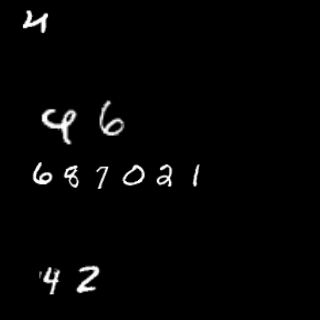 4
46
687021
42